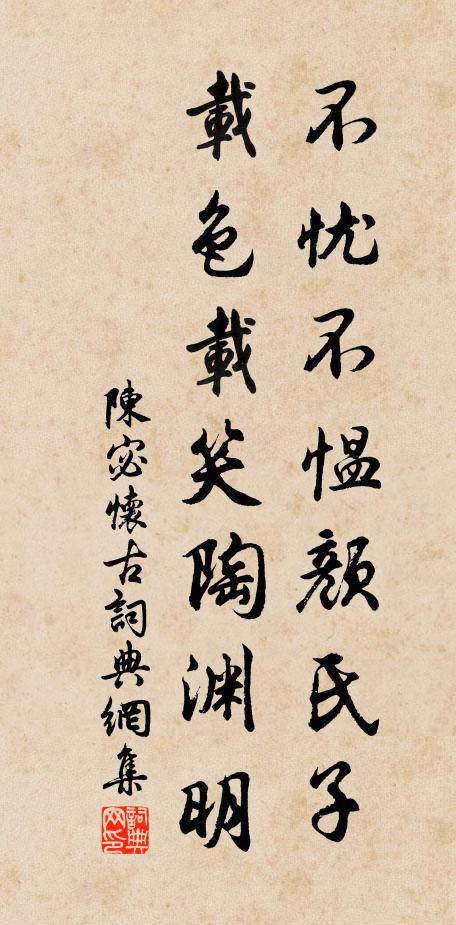 不忧不愠颜氏子
載色載笑陶渊明
陳宓懷古詞典網集
詞典网印